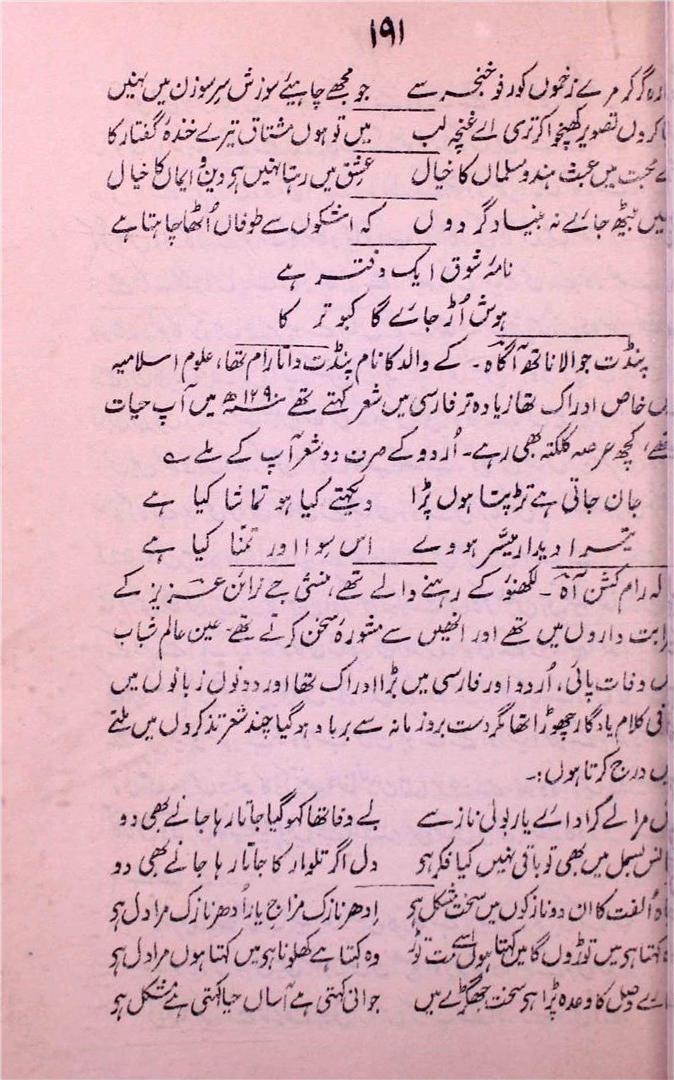 ۱۹۱
گر مرے زخموں کو رفو خنجر سے جو مجھے چاہیئے سوزش سرِ سوزن میں نہیں
کروں تصویر کھنچوا کر تری اے غنچہ لب میں تو ہوں مشتاق تیرے خندۂ گفتار کا
محبت میں عبث ہندو مسلماں کا خیال عشق میں رہتا نہیں ہر دین و ایماں کا خیال
بیٹھ جائے نہ بنیاد گردوں کہ اشکوں سے طوفاں اُٹھا چاہتا ہے
نامۂ شوق ایک دفتر ہے
ہوش اُڑ جائے گا کبوتر کا
پنڈت جوالا ناتھ آگاہ۔ کے والد کا نام پنڈت داتا رام تھا، علوم اسلامیہ
خاص ادراک تھا زیادہ تر فارسی میں شعر کہتے تھے ۱۲۹۰ھ میں آپ حیات
تھے، کچھ عرصہ کلکتہ بھی رہے۔ اُردو کے صرف دو شعر آپ کے ملے ے
جان جاتی ہے تڑپتا ہوں پڑا دیکھتے کیا ہو تماشا کیا ہے
تیرا دیدار میسّر ہووے اس سوا اور تمنّا کیا ہے
لہ رام کشن آہ۔ لکھنؤ کے رہنے والے تھے، منشی جے نرائن عزیز کے
ابت داروں میں تھے اور انھیں سے مشورۂ سخن کرتے تھے۔ عین عالم شباب
وفات پائی، اُردو اور فارسی میں بڑا ادراک تھا اور دونوں زبانوں میں
فی کلام یادگار چھوڑا تھا مگر دست بروز مانہ سے برباد ہو گیا چند شعر تذکروں میں ملتے
درج کرتا ہوں :۔
مرا لے کر ادائے یار بولی ناز سے بے وفا تھا کہو گیا جاتا رہا جانے بھی دو
بسمل میں بھی تو باقی نہیں کیا فکر ہو دل اگر تلوار کا جاتا رہا جانے بھی دو
اُلفت کا ان دو نازکوں میں سخت مشکل ہو اِدھر نازک مزاجِ یار اُدھر نازک مرا دل ہو
کہتا ہو میں توڑوں گا میں کہتا ہوں اسے مت توڑ وہ کہتا ہے کھلونا ہو میں کہتا ہوں مرا دل ہو
وصل کا وعدہ پڑا ہو سخت جھگڑے میں جوانی کہتی ہے آساں حیا کہتی ہے مشکل ہو